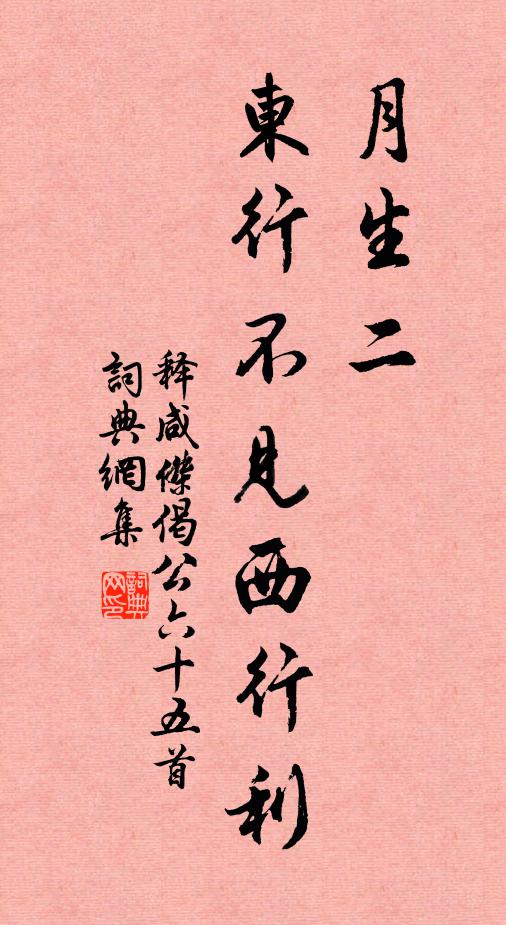 月生二
東行不見西行利
释咸傑偈公六十五首
詞典網集
詞典网印